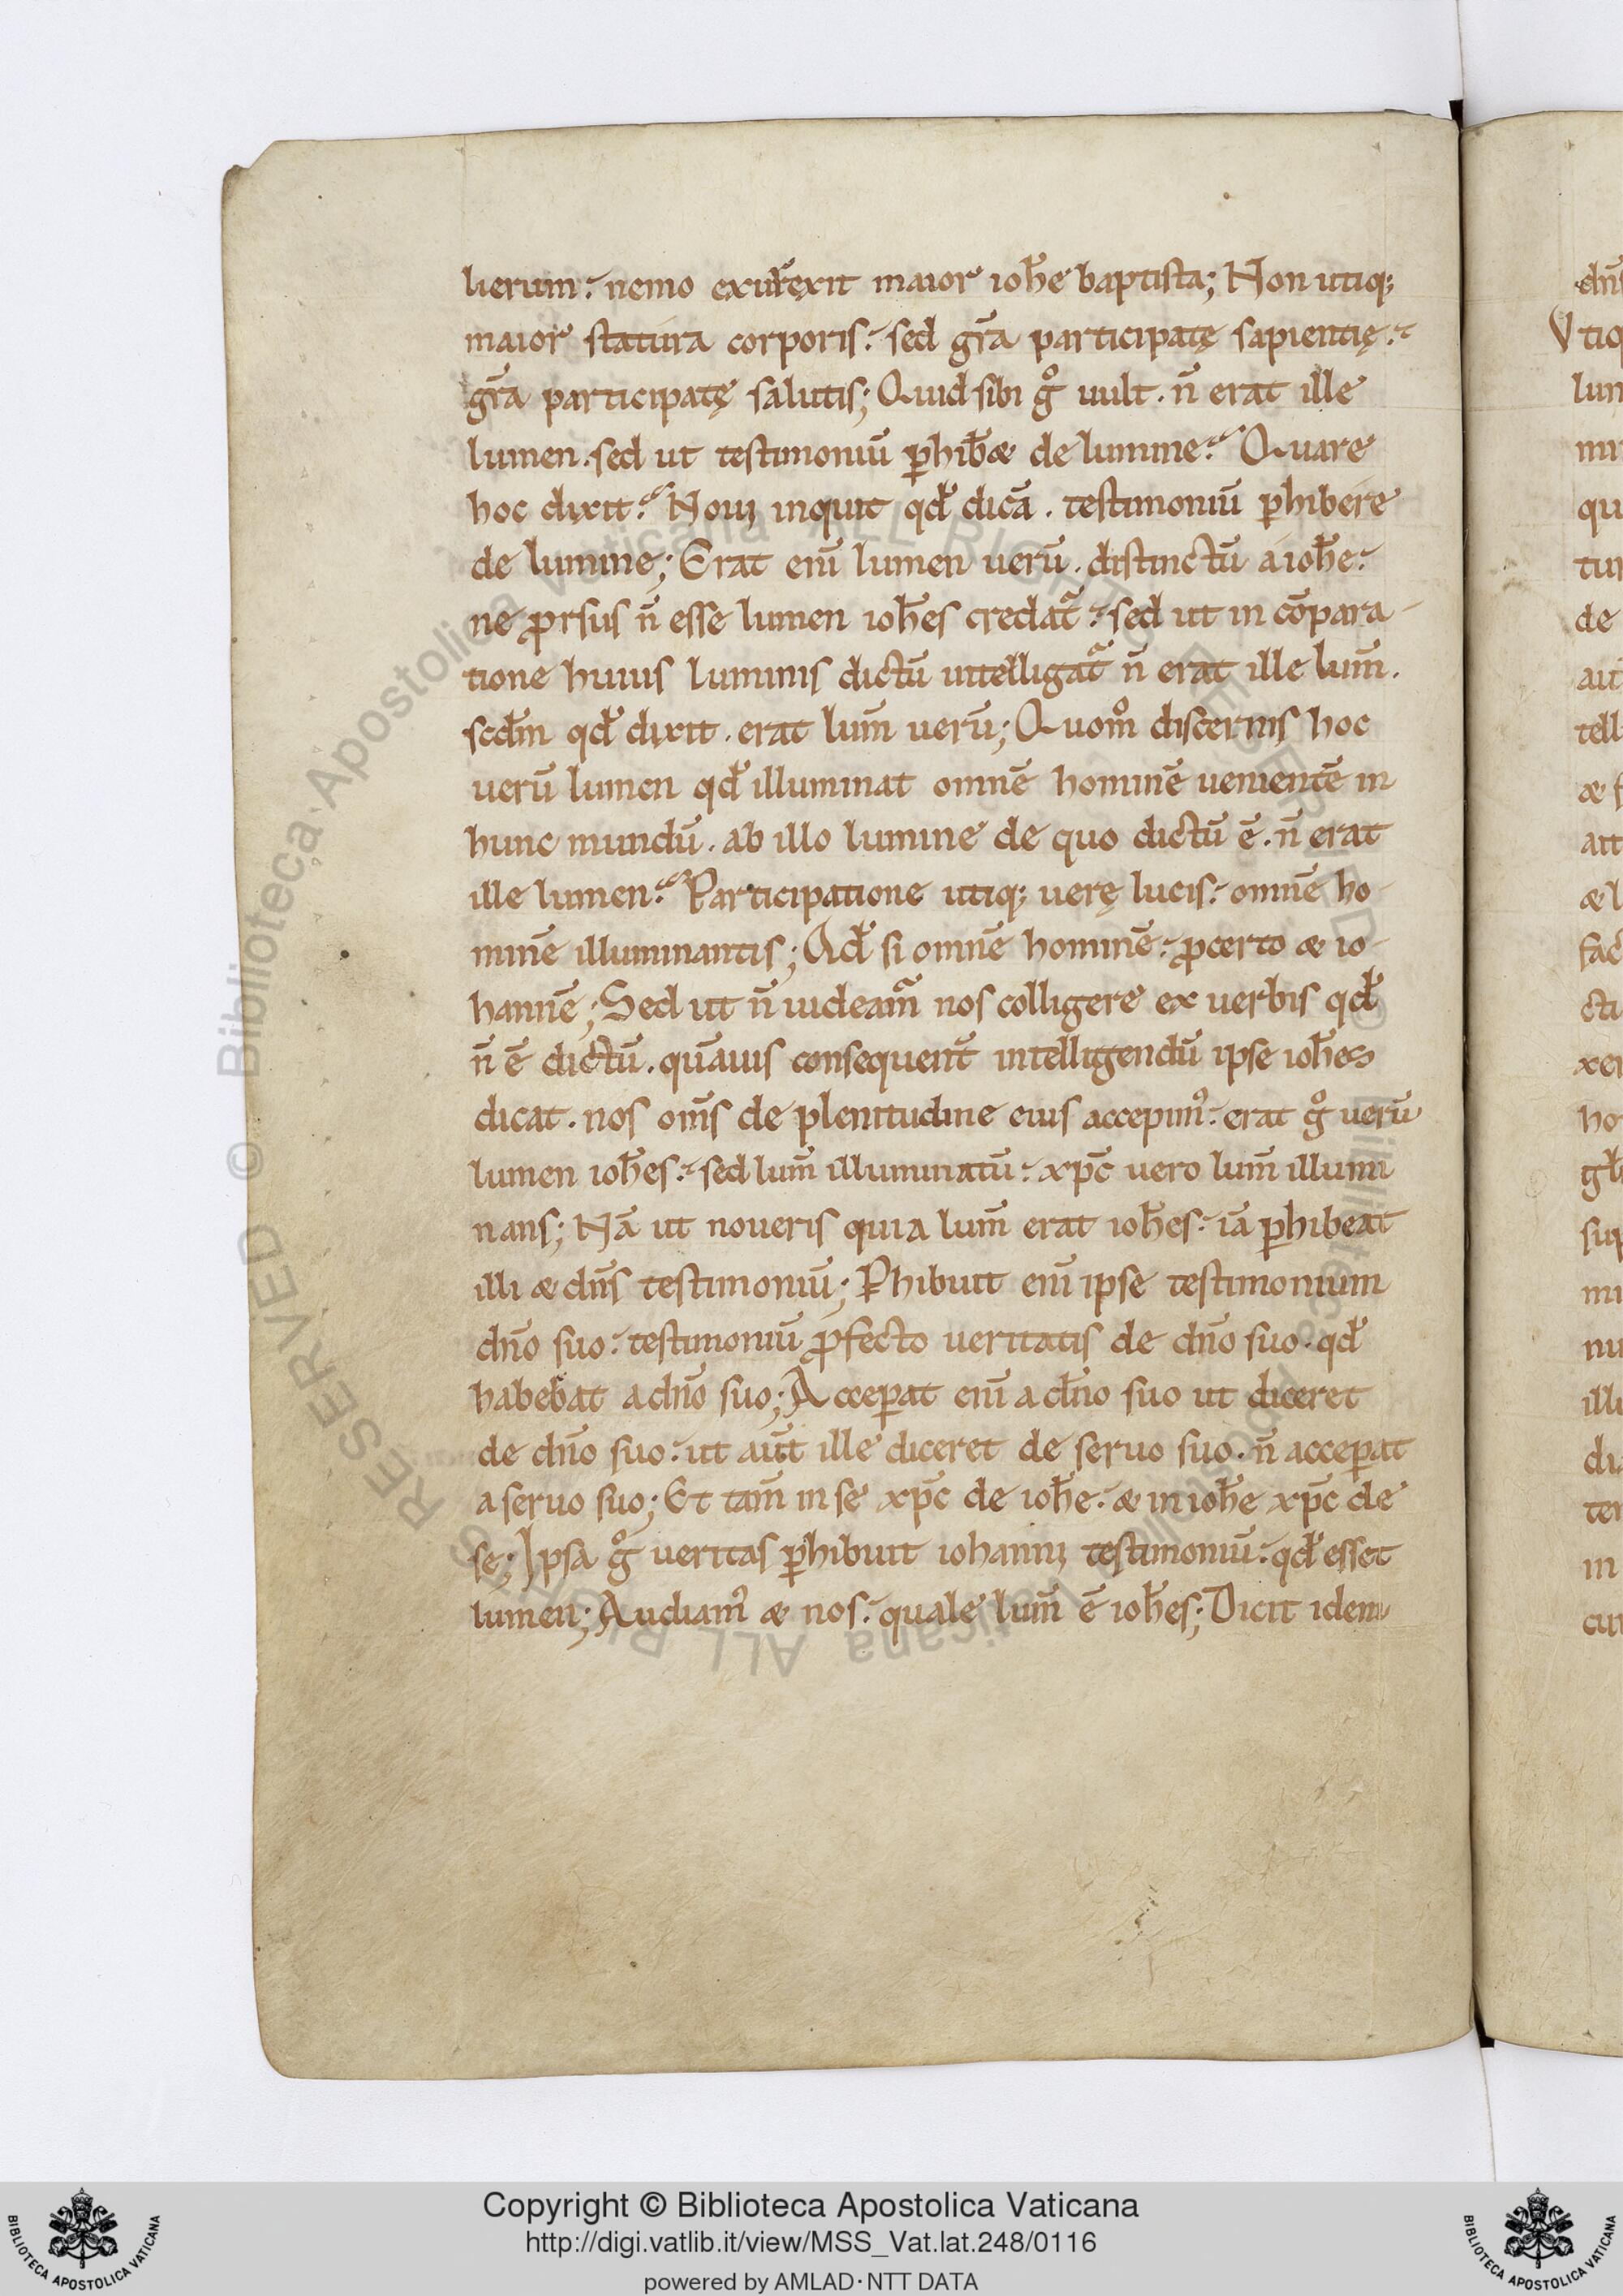 lierum. nemo exurrexit maior ioħe baptista; Non utiq;
maior statura corporis. sed gr̃a participatę sapientię.
gr̃a participatę salutis; Quid sibi gͦ uult. n̄ erat ille
lumen. sed ut testimoniū ꝑhib&̄ de lumine. Quare
hoc dixit. Noui inquit qđ dicā. testimoniū ꝑhibere
de lumine; Erat enī lumen uerū. distinctū a ioħe.
ne ꝓrsus n̄ esse lumen ioħes credat᷑. sed ut in cōpara
tione huius luminis dictū intelligat᷑ n̄ erat ille lum̄.
scđm qđ dixit. erat lum̄ uerū; Quom̊ discernis hoc
uerū lumen qđ illuminat omnē hominē uenientē in
hunc mundū. ab illo lumine de quo dictū ē. n̄ erat
ille lumen. Participatione utiq; uerę lucis. omnē ho
minē illuminantis; Qđ si omnē hominē. ꝓcerto & io
hannē; Sed ut n̄ uideam᷑ nos colligere ex uerbis qđ
n̄ ē dictū. quāuis consequent̄ intelligendū ipse ioħes
dicat. nos om̄s de plenitudine eius accepim᾽. erat gͦ uerū
lumen ioħes. sed lum̄ illuminatū. xp̄c uero lum̄ illumi
nans; Nā ut noueris quia lum̄ erat ioħes. iā ꝑhibeat
illi & dn̄s testimoniū; Ꝑhibuit enī ipse testimonium
dn̄o suo. testimoniū ꝓfecto ueritatis de dn̄o suo. qđ
habebat a dn̄o suo; Acceꝑat enī a dn̄o suo ut diceret
de dn̄o suo. ut aut̄ ille diceret de seruo suo. n̄ acceꝑat
a seruo suo; Et tam̄ in se xp̄c de ioħe. & in ioħe xp̄c de
se; Ipsa gͦ ueritas ꝑhibuit iohanni testimoniū. qđ esset
lumen; Audiam᾽ & nos. quale lum̄ ē ioħes; Dicit idem
© Biblioteca Apostolica Vaticana ALL RIGHTS RESERVED
Copyright © Biblioteca Apostolica Vaticana
http://digi.vatlib.it/view/MSS_Vat.lat.248/0116
powered by AMLAD·NTT DATA
BIBLIOTECA APOSTOLICA VATICANA
BIBLIOTECA APOSTOLICA VATICANA